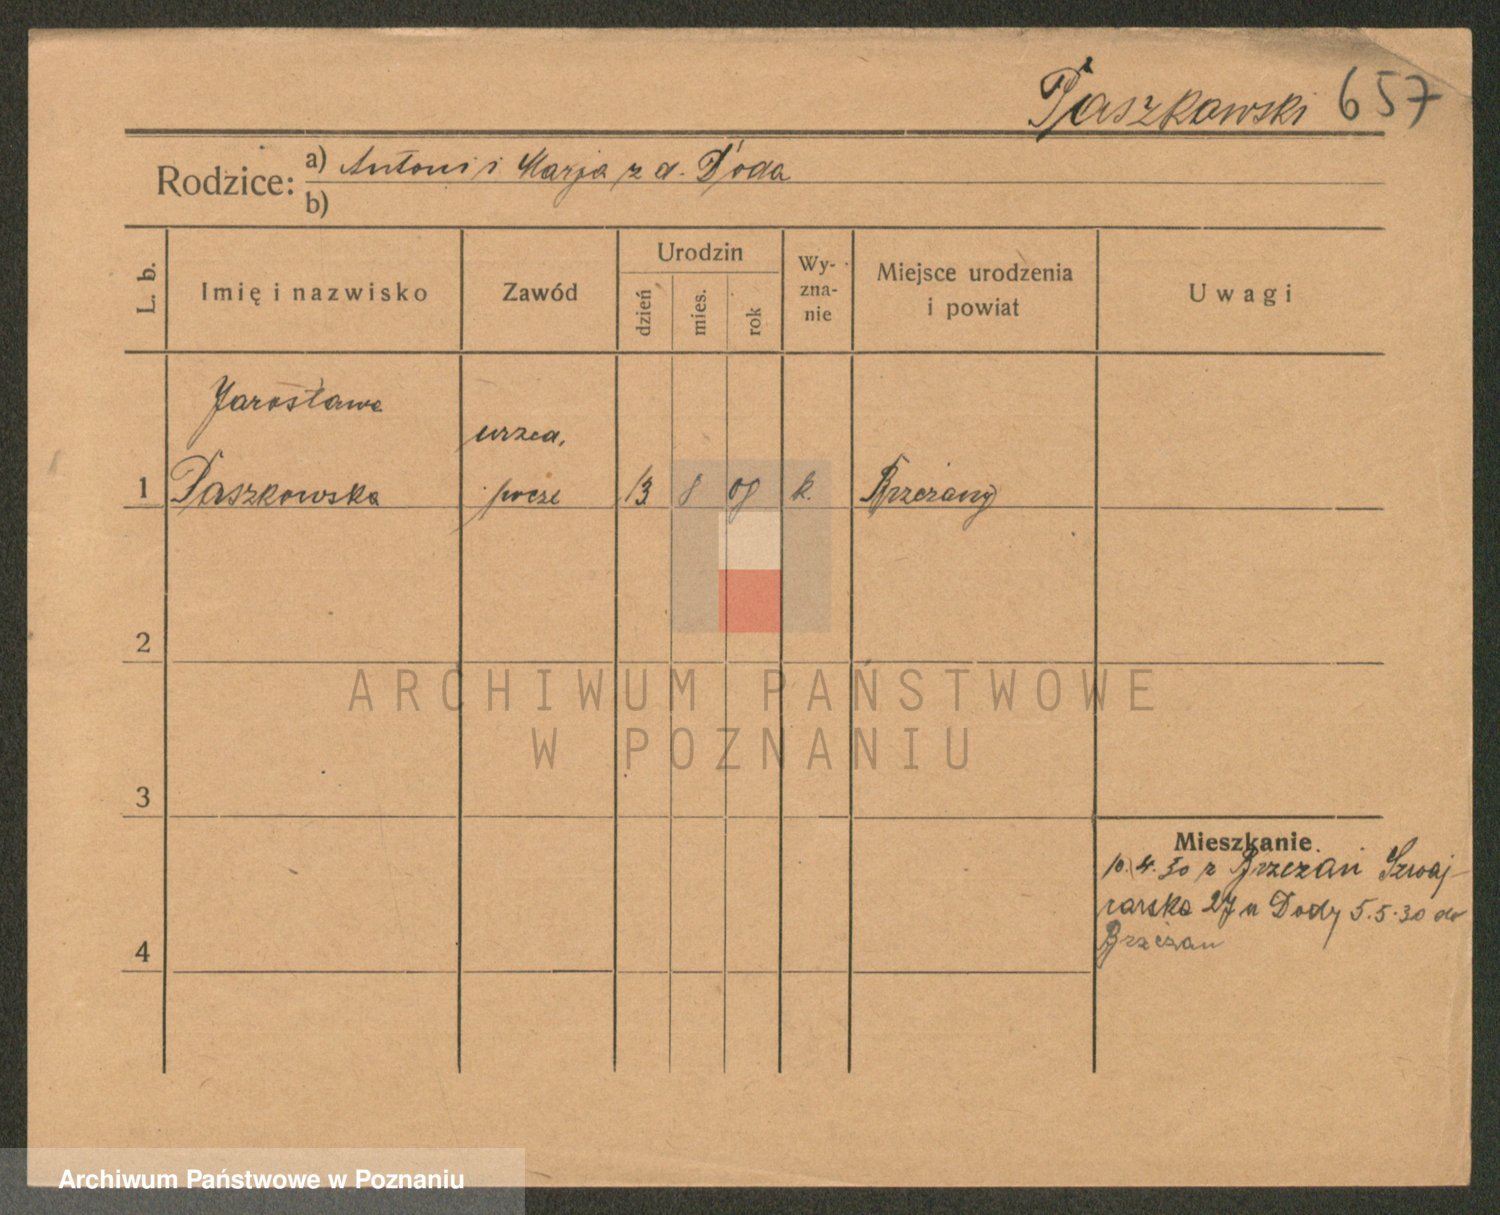 Paszkowski 657
Rodzice: a) Antoni i Marja z d. Doda
b)
L. b.
Imię i nazwisko
Zawód
Urodzin
dzień
mies.
rok
Wy-
zna-
nie
Miejsce urodzenia
i powiat
Uwagi
Jarosława
urzed,
1 Paszkowska poczt 13 8 08 k. Brzeżany
2
3
4
Mieszkanie
10.4.30 z Brzeżan Szwaj-
carska 27 u Dody 5.5.30 do
Brzeżan
ARCHIWUM PAŃSTWOWE
W POZNANIU
Archiwum Państwowe w Poznaniu